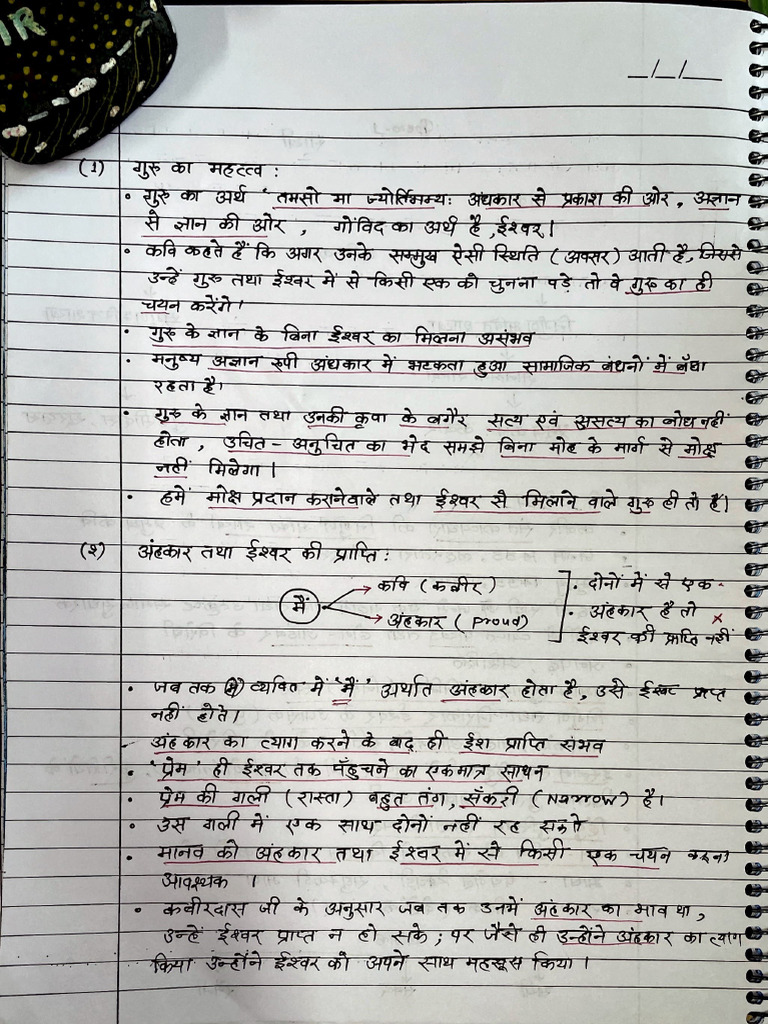 IR
_/_/__
(1) गुरु का महत्त्व :
• गुरु का अर्थ 'तमसो मा ज्योर्तिगमयः अंधकार से प्रकाश की ओर, अज्ञान
से ज्ञान की ओर, गोंविद का अर्थ है, ईश्वर।
• कवि कहते हैं कि अगर उनके सम्मुख ऐसी स्थिति (अवसर) आती है, जिससे
उन्हें गुरु तथा ईश्वर में से किसी एक को चुनना पड़े तो वे गुरु का ही
चयन करेंगे।
• गुरु के ज्ञान के बिना ईश्वर का मिलना असंभव
• मनुष्य अज्ञान रुपी अंधकार में भटकता हुआ सामाजिक बंधनों में बँधा
रहता है।
• गुरु के ज्ञान तथा उनकी कृपा के बगैर सत्य एवं असत्य का बोध नहीं
होता, उचित-अनुचित का भेद समझे बिना मोह के मार्ग से मोक्ष
नहीं मिलेगा।
• हमें मोक्ष प्रदान करानेवाले तथा ईश्वर से मिलाने वाले गुरु ही तो हैं।
(२) अंहकार तथा ईश्वर की प्राप्ति :
मैं → कवि (कबीर) ] दोनों में से एक-
→ अंहकार (proud) • अंहकार है तो ×
ईश्वर की प्राप्ति नहीं
• जब तक व्यक्ति में 'मैं' अर्थात अंहकार होता है, उसे ईश्वर प्राप्त
नहीं होते।
अंहकार का त्याग करने के बाद ही ईश प्राप्ति संभव
• 'प्रेम' ही ईश्वर तक पँहुचने का एकमात्र साधन
• प्रेम की गली (रास्ता) बहुत तंग, सँकरी (Narrow) है।
• उस गली में एक साथ दोनों नहीं रह सकते
• मानव को अंहकार तथा ईश्वर में से किसी एक चयन करना
आवश्यक ।
• कबीरदास जी के अनुसार जब तक उनमें अंहकार का भाव था,
उन्हें ईश्वर प्राप्त न हो सके; पर जैसे ही उन्होंने अंहकार का त्याग
किया उन्होंने ईश्वर को अपने साथ महसूस किया।